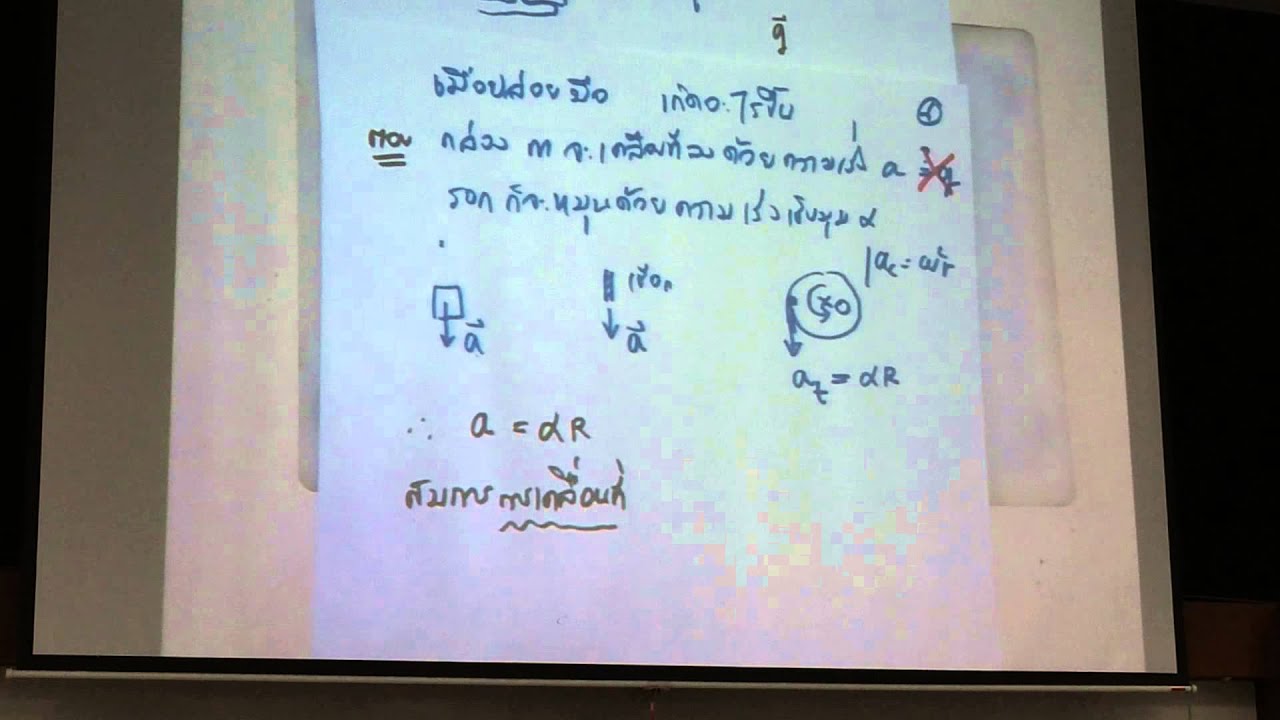 เมื่อปล่อยมือ เกิดอะไรขึ้น
ตอบ กล่อง m จะเคลื่อนที่ลงด้วยความเร่ง a
รอกก็จะหมุนด้วยความเร่งเชิงมุม α
a⃗
เชือก
a⃗
a_c = ω²r
a_t = αR
∴ a = αR
สมการการเคลื่อนที่